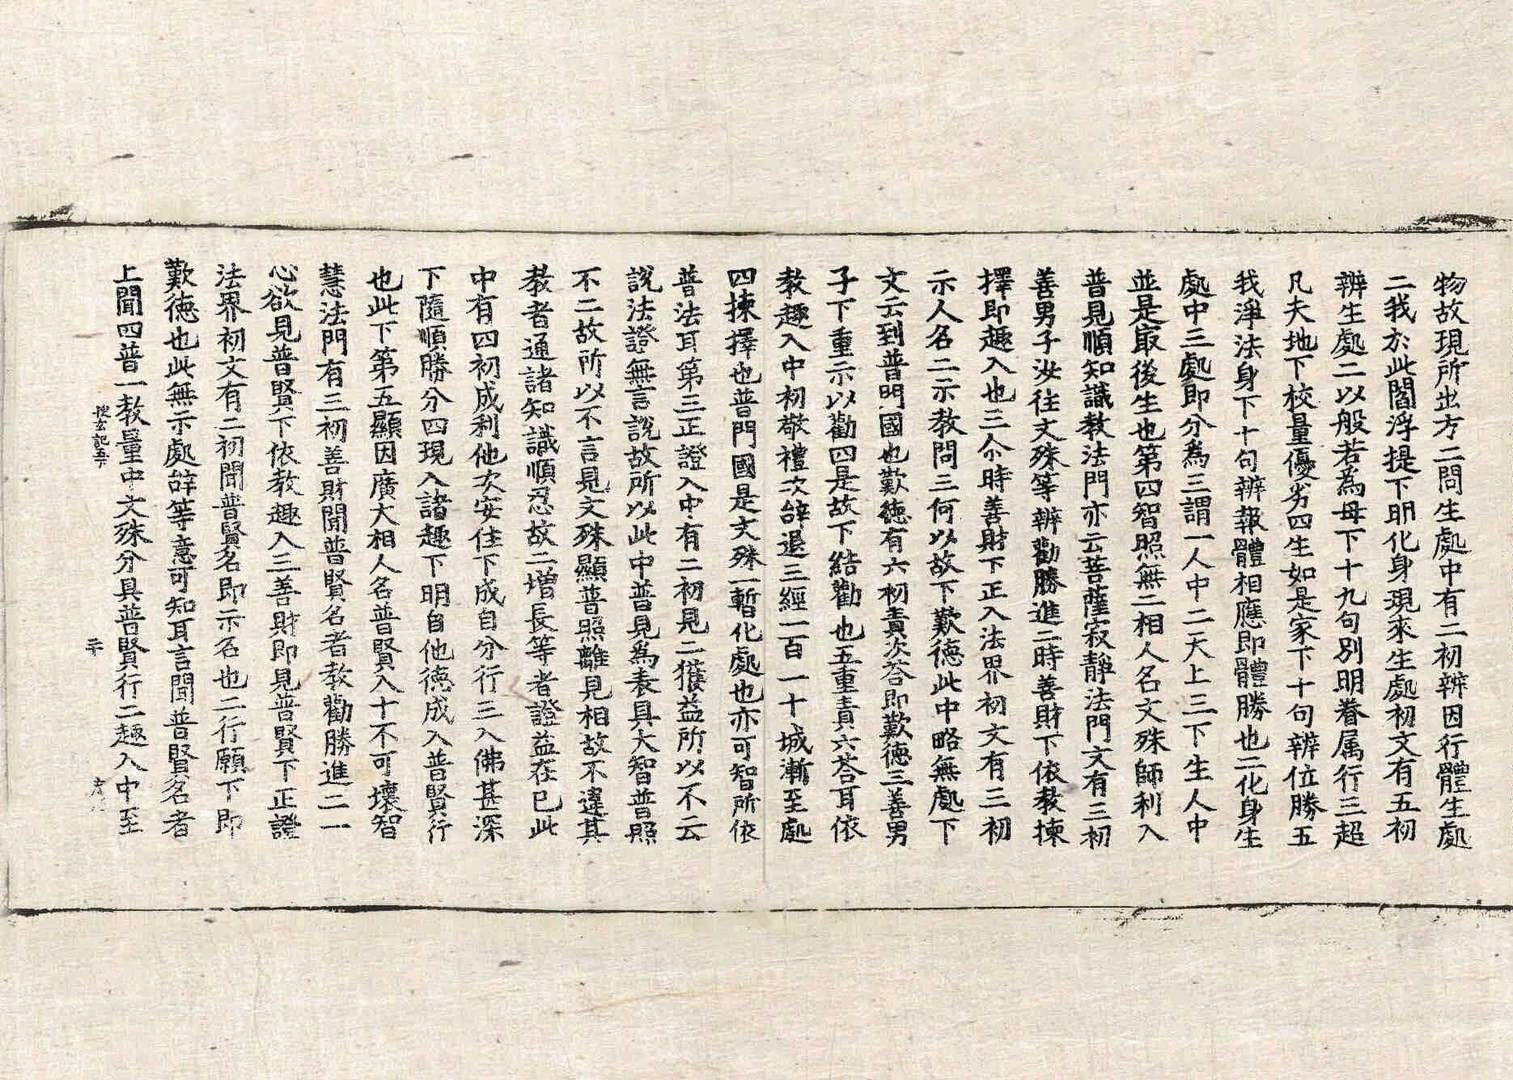 物故現所出方二問生處中有二初辨因行體生處
二我於此閻浮提下明化身現來生處初文有五初
辨生處二以般若為母下十九句別明眷属行三超
凡夫地下校量優劣四生如是家下十句辨位勝五
我淨法身下十句辨報體相應即體勝也二化身生
處中三處即分為三謂一人中二天上三下生人中
並是最後生也第四智照無二相人名文殊師利入
普見順知識教法門亦云菩薩寂靜法門文有三初
善男子汝往文殊等辨勸勝進二時善財下依教揀
擇即趣入也三尒時善財下正入法界初文有三初
示人名二示教問三何以故下歎德此中略無處下
文云到普門國也歎德有六初責次荅即歎德三善男
子下重示以勸四是故下結勸也五重責六荅耳依
教趣入中初敬禮次辝退三經一百一十城漸至處
四揀擇也普門國是文殊一暫化處也亦可智所依
普法耳第三正證入中有二初見二獲益所以不云
說法證無言說故所以此中普見為表具大智普照
不二故所以不言見文殊顯普照離見相故不違其
教者通諸知識順忍故二增長等者證益在已此
中有四初成利他次安住下成自分行三入佛甚深
下隨順勝分四現入諸趣下明自他德成入普賢行
也此下第五顯因廣大相人名普賢入十不可壞智
慧法門有三初善財聞普賢名者教勸勝進二一
心欲見普賢下依教趣入三善財即見普賢下正證
法界初文有二初聞普賢名即示名也二行願下即
歎德也此無示處辝等意可知耳言聞普賢名者
上聞四普一教量中文殊分具普賢行二趣入中至